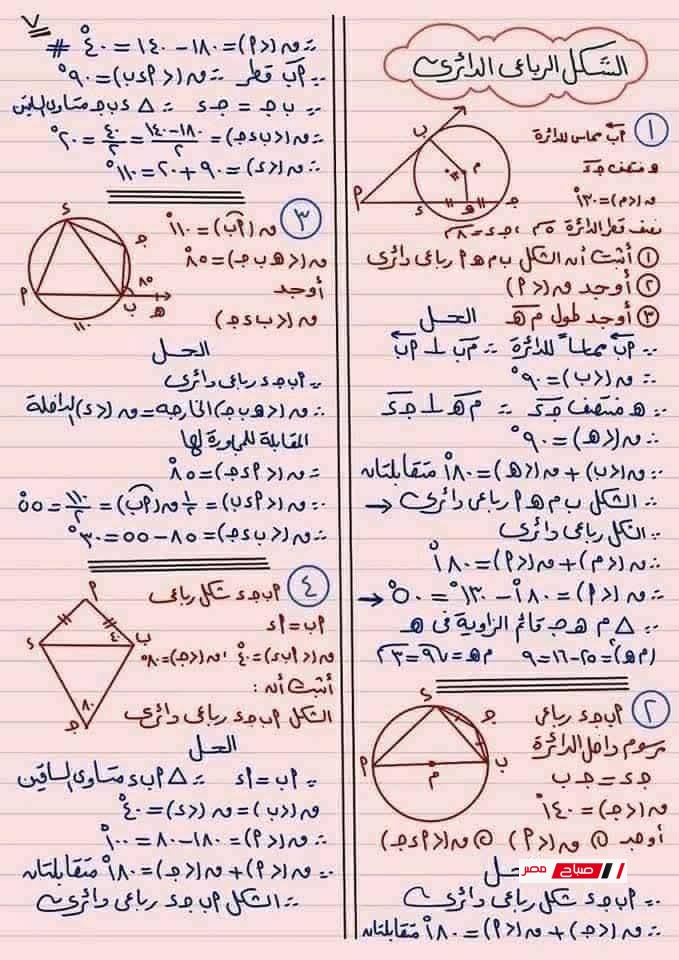 الشكل الرباعى الدائرى
١
أب مماس للدائرة
ه منتصف جـ د
ق(م) = ١٣٠°
نصف قطر الدائرة ٥سم ، جـ د = ٨سم
① أثبت أن الشكل ب م ه أ رباعى دائرى
② أوجد ق(<أ)
③ أوجد طول م ه
الحل
∵ أب مماساً للدائرة ∴ م ب ⊥ أب
∴ ق(<ب) = ٩٠°
∵ ه منتصف جـ د ∴ م ه ⊥ جـ د
∴ ق(<ه) = ٩٠°
∵ ق(<ب) + ق(<ه) = ١٨٠° متقابلتان
∴ الشكل ب م ه أ رباعى دائرى
∵ الشكل رباعى دائرى
∴ ق(<م) + ق(<أ) = ١٨٠°
∴ ق(<أ) = ١٨٠° - ١٣٠° = ٥٠°
∵ △ م ه جـ قائم الزاوية فى ه
(م ه)٢ = ٢٥ - ١٦ = ٩ م ه = √٩ = ٣سم
٢
أ ب جـ د رباعى
مرسوم داخل الدائرة
جـ د = جـ ب
ق(<جـ) = ١٤٠°
أوجد ① ق(<أ) ② ق(<أ د جـ)
الحل
صباح مصر
∵ أ ب جـ د شكل رباعى دائرى
∴ ق(<جـ) + ق(<أ) = ١٨٠° متقابلتان
٧
∴ ق(<أ) = ١٨٠ - ١٤٠ = ٤٠° #
∵ أب قطر ∴ ق(<أ د ب) = ٩٠°
∵ ب جـ = جـ د ∴ △ د ب جـ متساوى الساقين
∴ ق(<ب د جـ) = ١٨٠-١٤٠/٢ = ٤٠/٢ = ٢٠°
∴ ق(<د) = ٩٠ + ٢٠ = ١١٠°
٣
ق(أب) = ١١٠°
ق(<ه ب جـ) = ٨٥°
أوجد
ق(<ب د جـ)
الحل
∵ أ ب جـ د رباعى دائرى
∴ ق(<ه ب جـ) الخارجه = ق(<د) الداخلة
المقابلة للمجاورة لها
∴ ق(<أ د جـ) = ٨٥°
∵ ق(<أ د ب) = ١/٢ ق(أب) = ١١٠/٢ = ٥٥°
∴ ق(<ب د جـ) = ٨٥ - ٥٥ = ٣٠°
٤
أ ب جـ د شكل رباعى
أب = أد
ق(<أ ب د) = ٤٠° ، ق(<جـ) = ٨٠°
أثبت أن :
الشكل أ ب جـ د رباعى دائرى
الحل
∵ أب = أد ∴ △ أ ب د متساوى الساقين
ق(<ب) = ق(<د) = ٤٠°
∴ ق(<أ) = ١٨٠ - ٨٠ = ١٠٠°
∵ ق(<أ) + ق(<جـ) = ١٨٠° متقابلتان
∴ الشكل أ ب جـ د رباعى دائرى